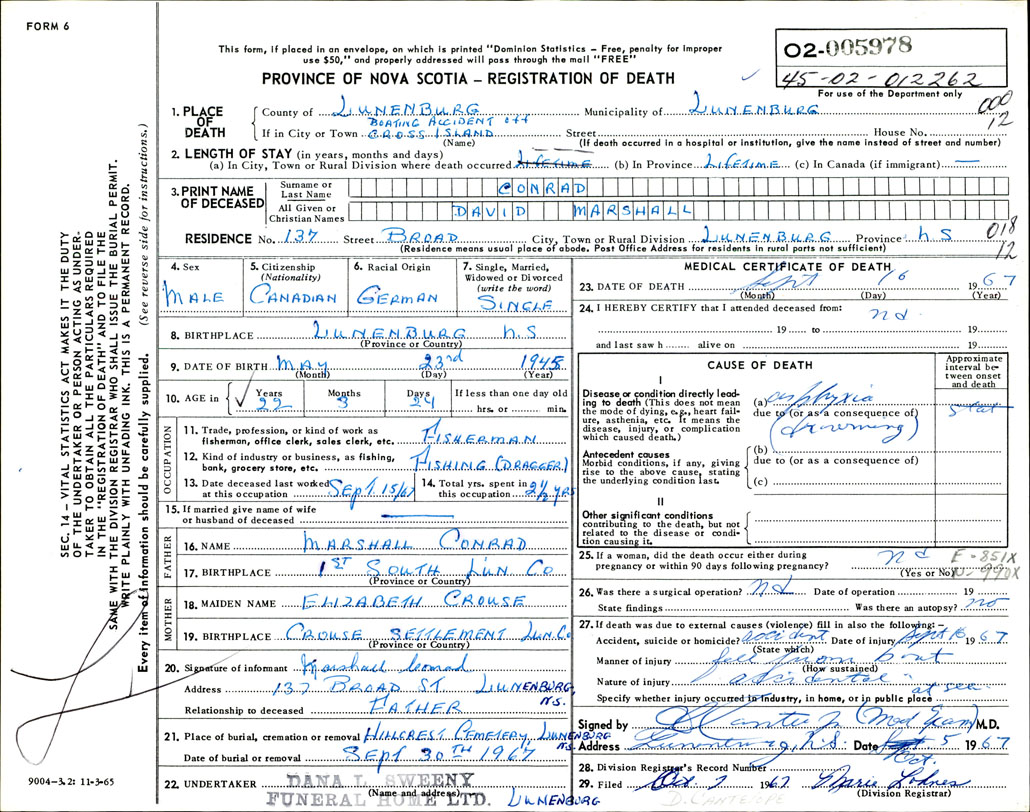 FORM 6
This form, if placed in an envelope, on which is printed "Dominion Statistics – Free, penalty for improper
use $50," and properly addressed will pass through the mail "FREE"
PROVINCE OF NOVA SCOTIA – REGISTRATION OF DEATH
02-005978
45-02-012262
For use of the Department only
000
12
1. PLACE OF DEATH
County of LUNENBURG Municipality of LUNENBURG
BOATING ACCIDENT OFF
If in City or Town CROSS ISLAND Street House No.
(Name) (If death occurred in a hospital or institution, give the name instead of street and number)
2. LENGTH OF STAY (in years, months and days)
(a) In City, Town or Rural Division where death occurred LIFETIME (b) In Province LIFETIME (c) In Canada (if immigrant) —
3. PRINT NAME OF DECEASED
Surname or Last Name CONRAD
All Given or Christian Names DAVID MARSHALL
RESIDENCE No. 137 Street BROAD City, Town or Rural Division LUNENBURG Province N S
(Residence means usual place of abode. Post Office Address for residents in rural parts not sufficient)
018
12
4. Sex MALE
5. Citizenship (Nationality) CANADIAN
6. Racial Origin GERMAN
7. Single, Married, Widowed or Divorced (write the word) SINGLE
8. BIRTHPLACE LUNENBURG N.S
(Province or Country)
9. DATE OF BIRTH MAY 23rd 1945
(Month) (Day) (Year)
10. AGE in Years 22 Months 3 Days 24 If less than one day old
hrs. or min.
OCCUPATION
11. Trade, profession, or kind of work as fisherman, office clerk, sales clerk, etc. FISHERMAN
12. Kind of industry or business, as fishing, bank, grocery store, etc. FISHING (DRAGGER)
13. Date deceased last worked at this occupation SEPT 15/67
14. Total yrs. spent in this occupation 2½ YRS
15. If married give name of wife or husband of deceased —
FATHER
16. NAME MARSHALL CONRAD
17. BIRTHPLACE 1ST SOUTH LUN CO
(Province or Country)
MOTHER
18. MAIDEN NAME ELIZABETH CROUSE
19. BIRTHPLACE CROUSE SETTLEMENT LUN Co
(Province or Country)
20. Signature of informant Marshall Conrad
Address 137 BROAD ST LUNENBURG, N.S.
Relationship to deceased FATHER
21. Place of burial, cremation or removal HILLCREST CEMETERY, LUNENBURG N.S.
Date of burial or removal SEPT 30TH 1967
22. UNDERTAKER DANA L. SWEENY
(Name and address)
FUNERAL HOME LTD. LUNENBURG
MEDICAL CERTIFICATE OF DEATH
23. DATE OF DEATH Sept 16 1967
(Month) (Day) (Year)
24. I HEREBY CERTIFY that I attended deceased from:
19 to 19
and last saw h alive on 19
CAUSE OF DEATH
Approximate interval between onset and death
I
Disease or condition directly leading to death (This does not mean the mode of dying, e.g., heart failure, asthenia, etc. It means the disease, injury, or complication which caused death.)
(a) asphyxia
due to (or as a consequence of)
(drowning)
Antecedent causes
Morbid conditions, if any, giving rise to the above cause, stating the underlying condition last.
(b)
due to (or as a consequence of)
(c)
II
Other significant conditions
contributing to the death, but not related to the disease or condition causing it.
25. If a woman, did the death occur either during pregnancy or within 90 days following pregnancy?
(Yes or No)
E-851X
N-990X
26. Was there a surgical operation? Date of operation 19
State findings Was there an autopsy? no
27. If death was due to external causes (violence) fill in also the following:–
Accident, suicide or homicide? accident Date of injury Sept 16 1967
(State which)
Manner of injury fell from boat
(How sustained)
Nature of injury accidental
Specify whether injury occurred in industry, in home, or in public place at sea
Signed by (Med Exam) M.D.
Address Lunenburg, N.S. Date Oct. 5 1967
28. Division Registrar's Record Number
29. Filed Oct. 7 1967 Marie
(Division Registrar)
D. CANTELOPE
SEC. 14 – VITAL STATISTICS ACT MAKES IT THE DUTY
OF THE UNDERTAKER OR PERSON ACTING AS UNDER-
TAKER TO OBTAIN ALL THE PARTICULARS REQUIRED
IN THE "REGISTRATION OF DEATH" AND TO FILE THE
SAME WITH THE DIVISION REGISTRAR WHO SHALL ISSUE THE BURIAL PERMIT.
WRITE PLAINLY WITH UNFADING INK. THIS IS A PERMANENT RECORD.
Every item of information should be carefully supplied. (See reverse side for instructions.)
9004-3.2: 11-3-65